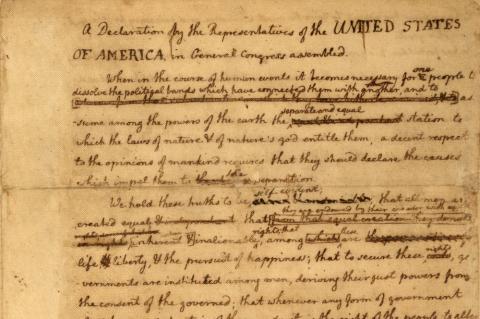 A Declaration by the Representatives of the UNITED STATES
OF AMERICA, in General Congress assembled.
When in the course of human events it becomes necessary for one people to
dissolve the political bands which have connected them with another, and to
as-
separate and equal
-sume among the powers of the earth the station to
which the laws of nature & of nature's god entitle them, a decent respect
to the opinions of mankind requires that they should declare the causes
which impel them to the separation.
self-evident;
We hold these truths to be that all men are
they are endowed by their creator with
created equal & independant; that from that equal creation they derive
rights; that these
in rights inherent & inalienable, among which are
life & liberty, & the pursuit of happiness; that to secure these rights, go-
-vernments are instituted among men, deriving their just powers from
the consent of the governed; that whenever any form of government
the right of the people to alter